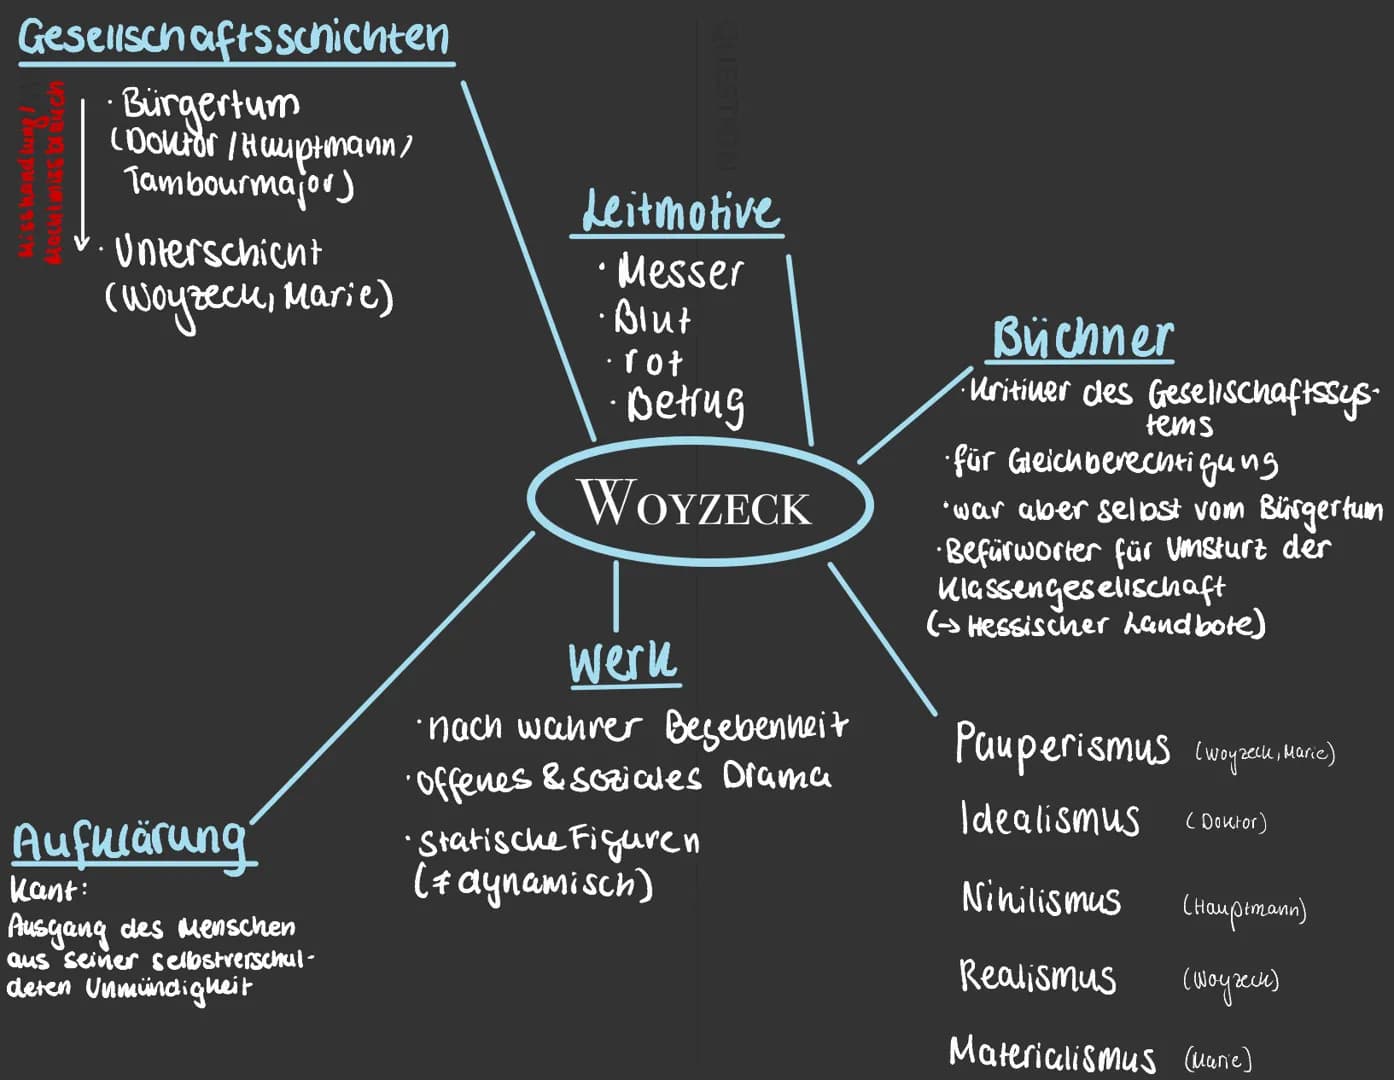 Gesellschaftsschichten
Misshandlung /
Machtmissbrauch
· Bürgertum
(Doktor / Hauptmann /
Tambourmajor)
· Unterschicht
(Woyzeck, Marie)
Leitmotive
· Messer
· Blut
· rot
· Betrug
Büchner
· Kritiker des Gesellschaftssys-
tems
· für Gleichberechtigung
· war aber selbst vom Bürgertum
· Befürworter für Umsturz der
Klassengesellschaft
(→ Hessischer Landbote)
WOYZECK
Werk
· nach wahrer Begebenheit
· offenes & soziales Drama
· statische Figuren
(≠ dynamisch)
Aufklärung
Kant:
Ausgang des Menschen
aus seiner selbstverschul-
deten Unmündigkeit
Pauperismus (Woyzeck, Marie)
Idealismus (Doktor)
Nihilismus (Hauptmann)
Realismus (Woyzeck)
Materialismus (Marie)
QUESTION